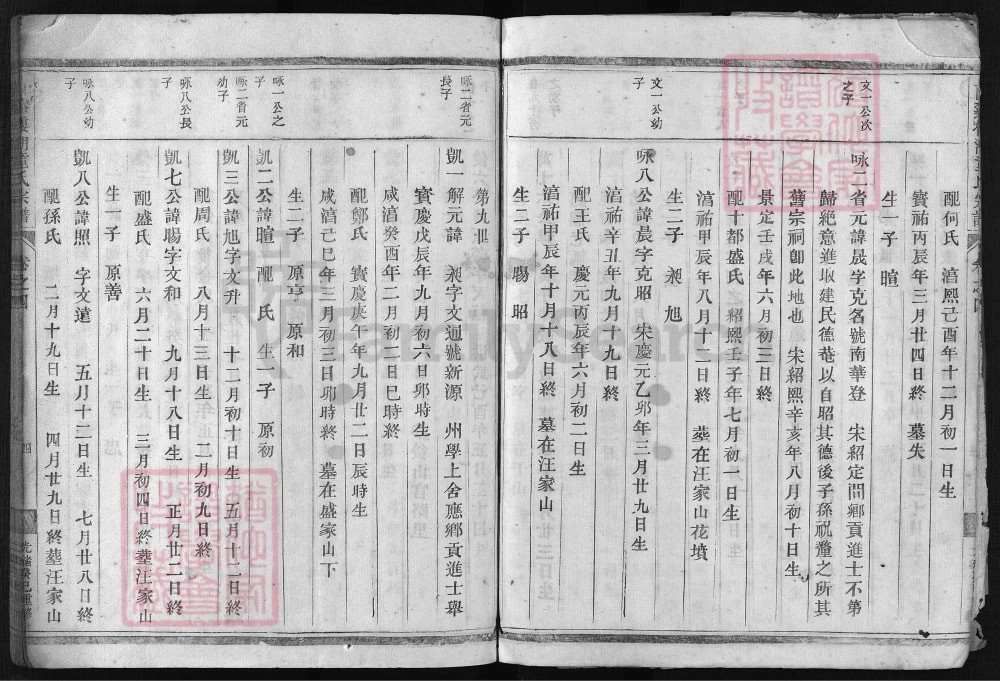 配何氏 淳熙己酉年十二月初一日生
寶祐丙辰年三月廿四日終 墓失
生一子 暄
文一公次
之子
咏二省元諱晟字克名號南華登 宋紹定間鄉貢進士不第
歸絶意進取建民德菴以自昭其德後子孫祝釐之所其
舊宗祠卽此地也 宋紹熙辛亥年八月初十日生
景定壬戌年六月初三日終
配十都盛氏 紹熙壬子年七月初一日生
淳祐甲辰年八月十二日終 葬在汪家山花墳
生二子 昶 旭
文一公幼
子
咏八公諱晨字克昭 宋慶元乙卯年三月廿九日生
淳祐辛丑年九月十九日終
配王氏 慶元丙辰年六月初二日生
淳祐甲辰年十月十八日終 墓在汪家山
生二子 暘 昭
第九世
咏二省元
長子
凱一解元諱 昶字文通號新源 州學上舍應鄉貢進士舉
寶慶戊辰年九月初六日卯時生
咸淳癸酉年二月初二日巳時終
配鄭氏 寶慶庚午年九月廿二日辰時生
咸淳己巳年三月初三日卯時終 墓在盛家山下
生二子 原亨 原和
咏一公之
子
凱二公諱暄 配 氏 生一子 原初
咏二省元
幼子
凱三公諱旭字文升 十二月初十日生 五月十二日終
配周氏 八月十三日生 二月初九日終
咏八公長
子
凱七公諱暘字文和 九月十八日生 正月廿二日終
配盛氏 六月二十日生 三月初四日終葬汪家山
生一子 原善
咏八公幼
子
凱八公諱照 字文達 五月十二日生 七月廿八日終
配孫氏 二月十九日生 四月廿九日終葬汪家山
四
FamilySearch